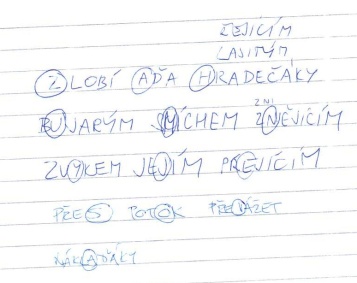 LASIMÝM
ZLOBÍ AĎA HRADEČÁKY
BUJARÝM SMÍCHEM ZNĚJÍCÍM
ZVUKEM JEJÍM PŘEJÍCÍM
PŘES POTOK PŘENÁŽET
NÁKLAĎÁKY